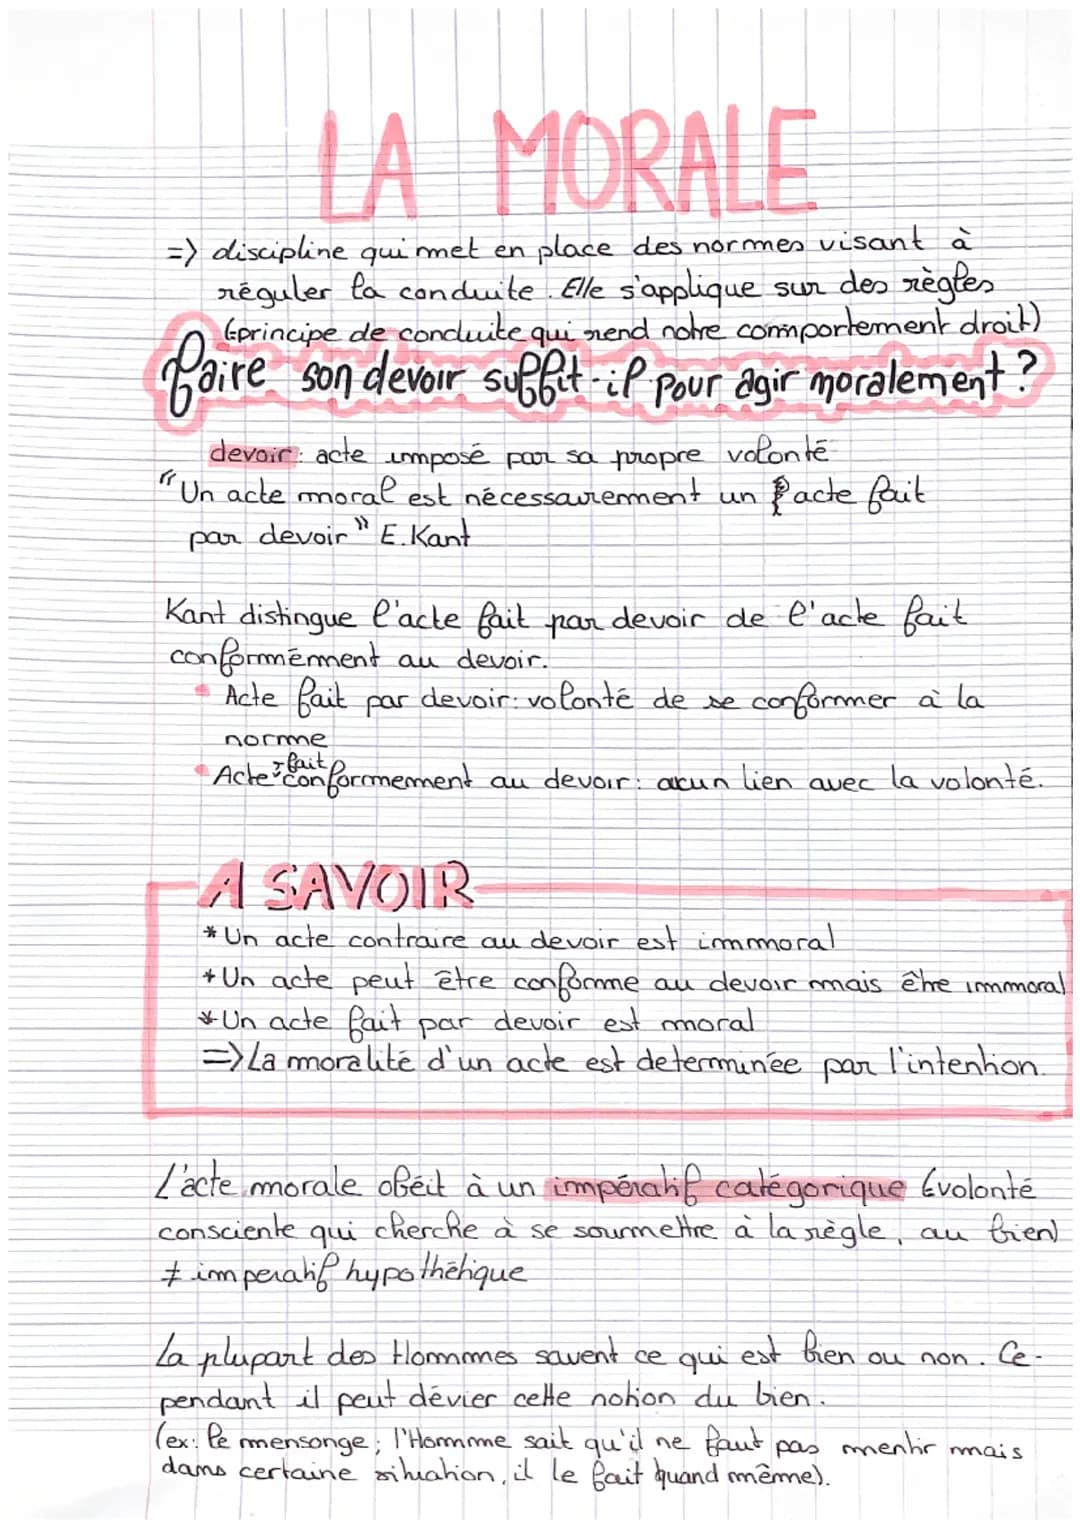 LA MORALE
=> discipline qui met en place des normes visant à
réguler la conduite. Elle s'applique sur des règles
(principe de conduite qui rend notre comportement droit)
Faire son devoir suffit-il pour agir moralement ?
devoir : acte imposé par sa propre volonté
"Un acte moral est nécessairement un acte fait
par devoir" E.Kant
Kant distingue l'acte fait par devoir de l'acte fait
conformément au devoir.
• Acte fait par devoir: volonté de se conformer à la
norme
• Acte fait conformement au devoir: acun lien avec la volonté.
A SAVOIR
* Un acte contraire au devoir est immoral
* Un acte peut être conforme au devoir mais être immoral
* Un acte fait par devoir est moral
=> La moralité d'un acte est determinée par l'intention.
L'acte morale obéit à un impératif catégorique (volonté
consciente qui cherche à se soumettre à la règle, au bien)
≠ imperatif hypothétique
La plupart des Hommes savent ce qui est bien ou non. Ce-
pendant il peut dévier cette notion du bien.
(ex: le mensonge ; l'Homme sait qu'il ne faut pas mentir mais
dans certaine situation, il le fait quand même).